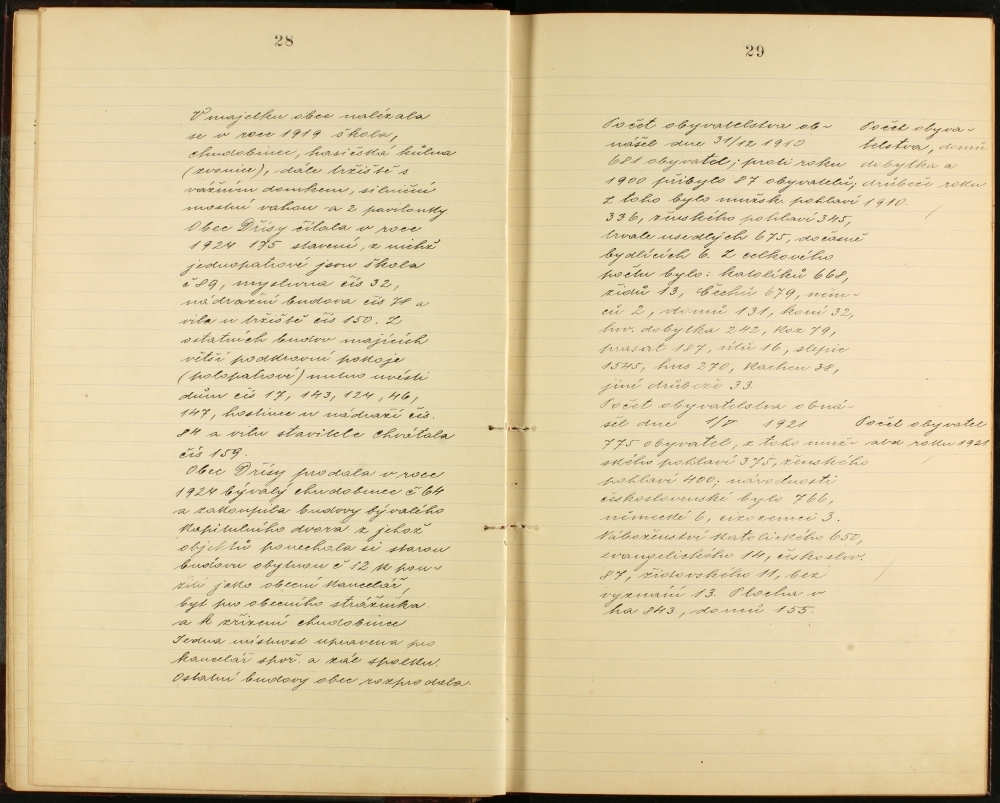 28
V majetku obce nalézala
se v roce 1919 škola,
chudobinec, hasičská kůlna
(zvonice), dále tržiště s
vážním domkem, silniční
mostní vahou a 2 pavilonky
Obec Dřísy čítala v roce
1924 175 stavení, z nichž
jednopatrové jsou škola
č 89, myslivna čís 32,
nádražní budova čís 78 a
vila u tržiště čís 150. Z
ostatních budov majících
větší podkrovní pokoje
(polopatrové) nutno uvésti
dům čís 17, 143, 124, 46,
147, hostinec u nádraží čís.
84 a vilu stavitele Chvátala
čís 159.
Obec Dřísy prodala v roce
1924 bývalý chudobinec č 64
a zakoupila budovy bývalého
kapitulního dvora z jehož
objektů ponechala si starou
budovu obytnou č 12 k pou-
žití jako obecní kancelář,
byt pro obecního strážníka
a k zřízení chudobince
Jedna místnost upravena pro
kancelář spoř. a zál. spolku.
Ostatní budovy obec rozprodala.
29
Počet obyvatelstva ob-
nášel dne 31/12 1910
681 obyvatel; proti roku
1900 přibylo 87 obyvatelů,
z toho bylo mužsk. pohlaví
336, ženského pohlaví 345,
trvale usedlých 675, dočasně
bydlících 6. Z celkového
počtu bylo: katolíků 668,
židů 13, Čechů 679, něm-
ců 2, domů 131, koní 32,
hov. dobytka 242, koz 79,
prasat 187, úlů 16, slepic
1545, hus 270, kachen 38,
jiné drůbeže 33.
Počet obyvatelstva,
domů
dobytka a
drůbeže roku
1910.
Počet obyvatelstva obná-
šel dne 1/II 1921
775 obyvatel; z toho muž-
ského pohlaví 375, ženského
pohlaví 400; národnosti
československé bylo 766,
německé 6, cizozemci 3.
Náboženství katolického 650,
evangelického 14, českoslov.
87, židovského 11, bez
vyznání 13. Plocha v
ha 843, domů 155.
Počet obyvatel
atd roku 1921